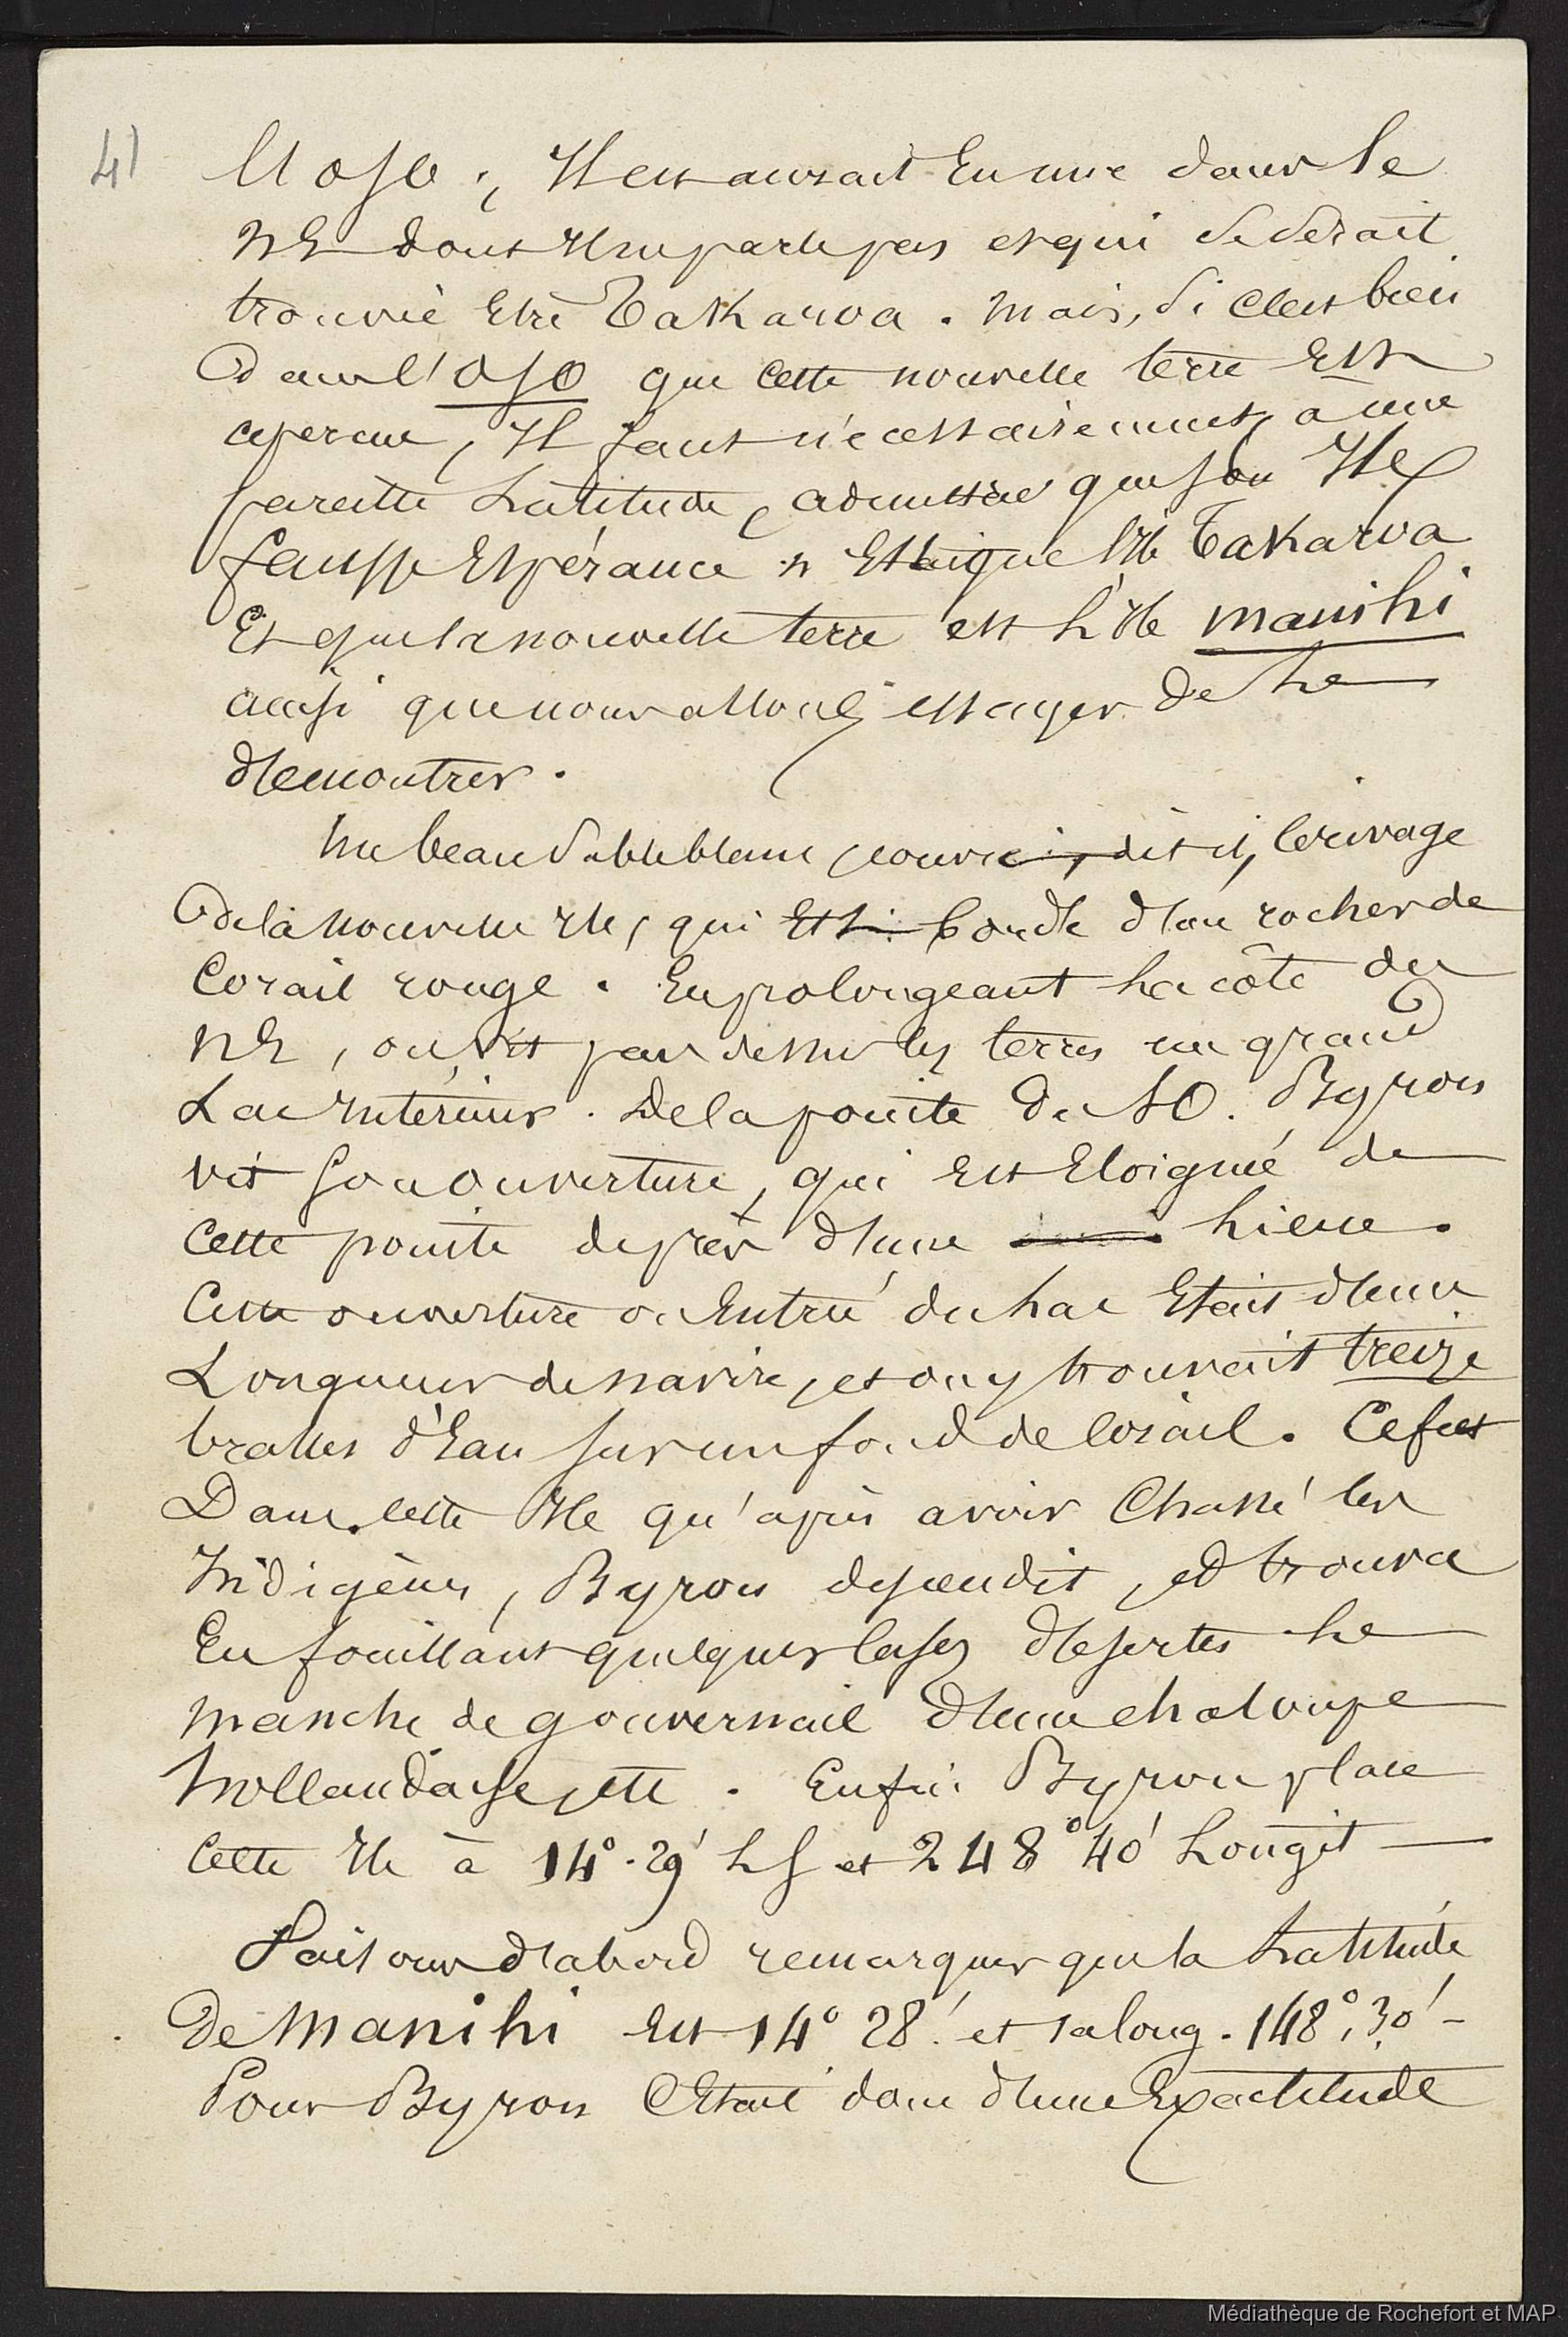 41
l'OSO ; Il en aurait eu une dans le
NE dont il ne parle pas et qui se serait
trouvée être Takaroa. Mais, si c'est bien
dans l'OSO que cette nouvelle terre est
aperçue, Il faut nécessairement, a une
pareille Latitude, admettre que son Ile
fausse Espérance n'est que l'Ile Takaroa
Et que la nouvelle terre est L'Ile manihi
ainsi que nous allons essayer de Le
démontrer.
Un beau sable blanc couvre, dit il, le rivage
de la nouvelle Ile, qui est bordé d'un rocher de
Corail rouge. En prolongeant La côte du
NE, on vit par dessus les terres un grand
Lac Intérieur. De la pointe du SO. Byron
vit son ouverture, qui est Eloigné de
cette pointe de près d'une Lieue.
Cette ouverture ou Entrée du Lac Etait d'une
Longueur de navire, et on y trouvait treize
brasses d'Eau sur un fond de Corail. Ce fut
Dans cette Ile qu'après avoir Chassé les
Indigènes, Byron descendit, et trouva
En fouillant quelques cases désertes Le
manche de gouvernail d'une chaloupe
hollandaise, etc. Enfin Byron place
Cette Ile à 14°.29' L S et 248° 40' Longit
Faisons d'abord remarquer que la Latitude
De Manihi Est 14° 28' et sa long. 148°,30' -
Pour Byron C'Etait donc d'une Exactitude
Médiathèque de Rochefort et MAP